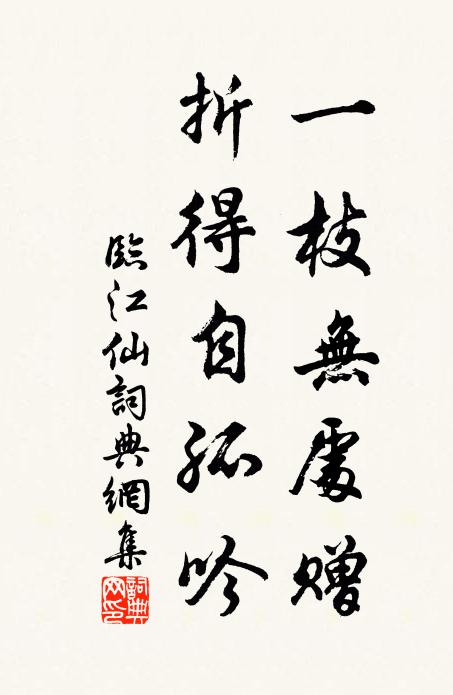 一枝無處贈
折得自孤吟
臨江仙詞典網集
詞典
网印